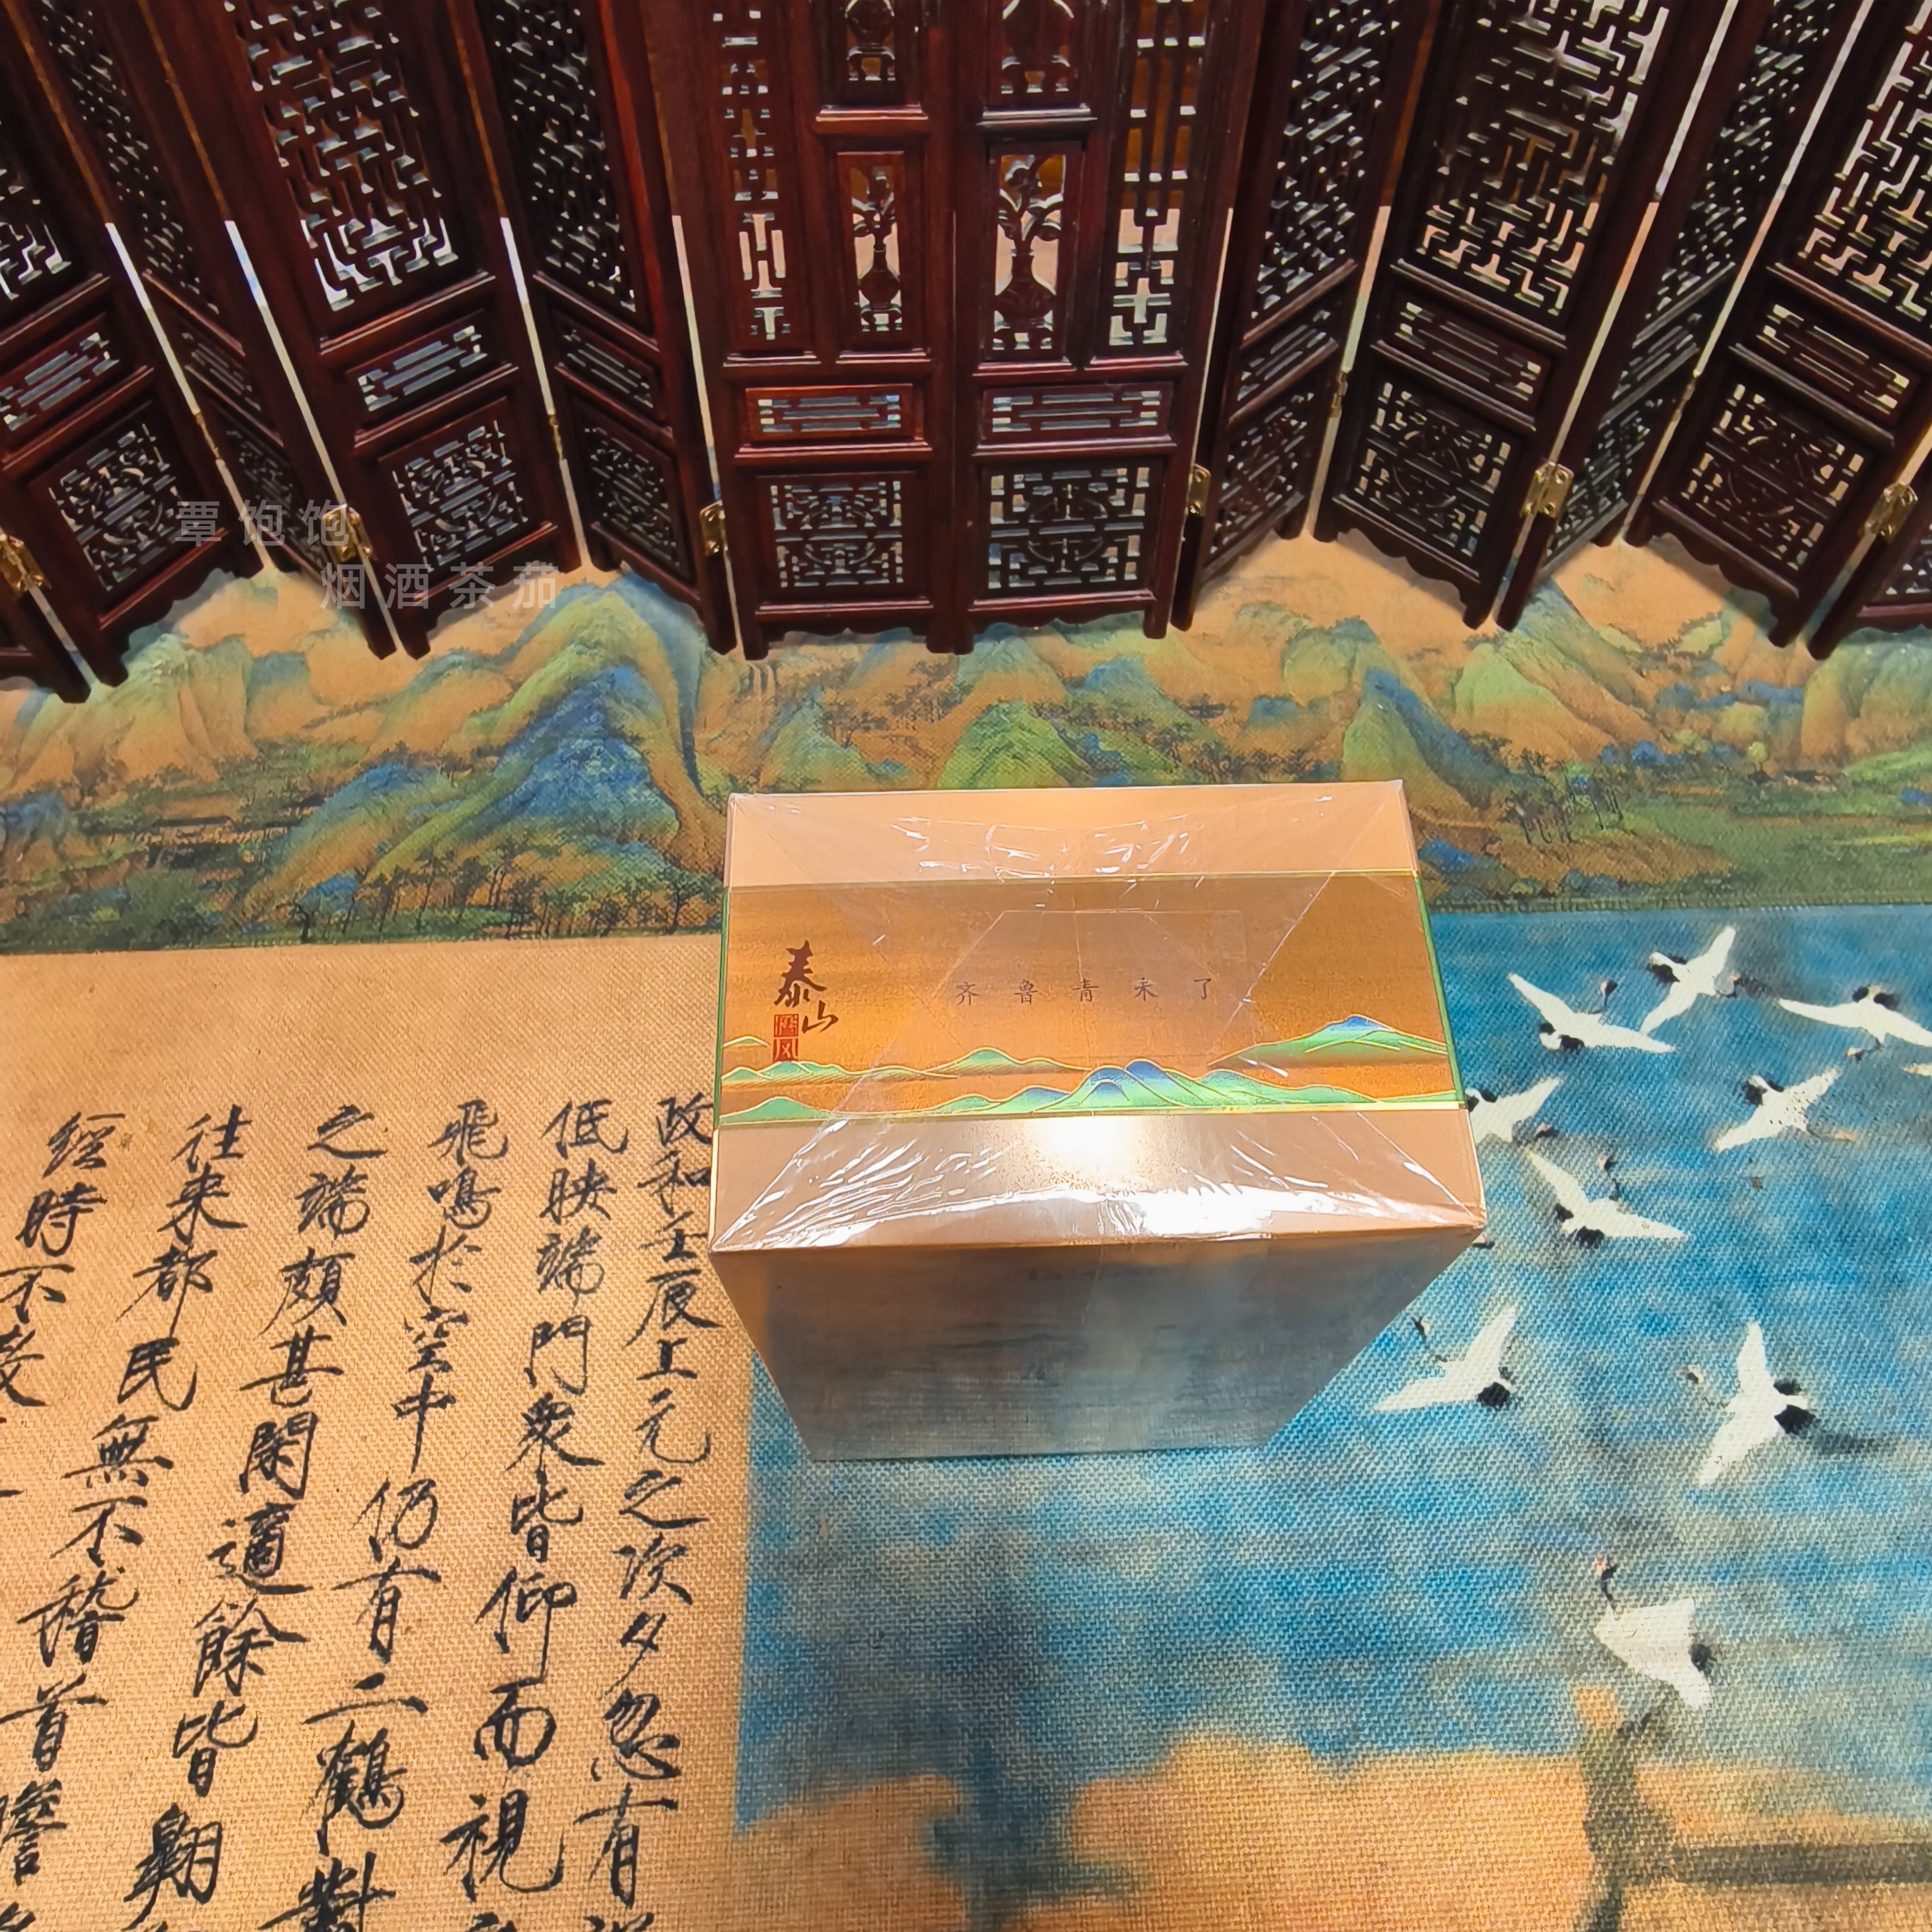 覃饱饱
烟酒茶茄
泰山
儒风
齐鲁青未了
政和壬辰上元之次夕忽有
低映端門衆皆仰而視
飛鳴於空中仍有二鶴對
之端頗甚閑適餘皆翱
往来都民無不稽首瞻
經時不散